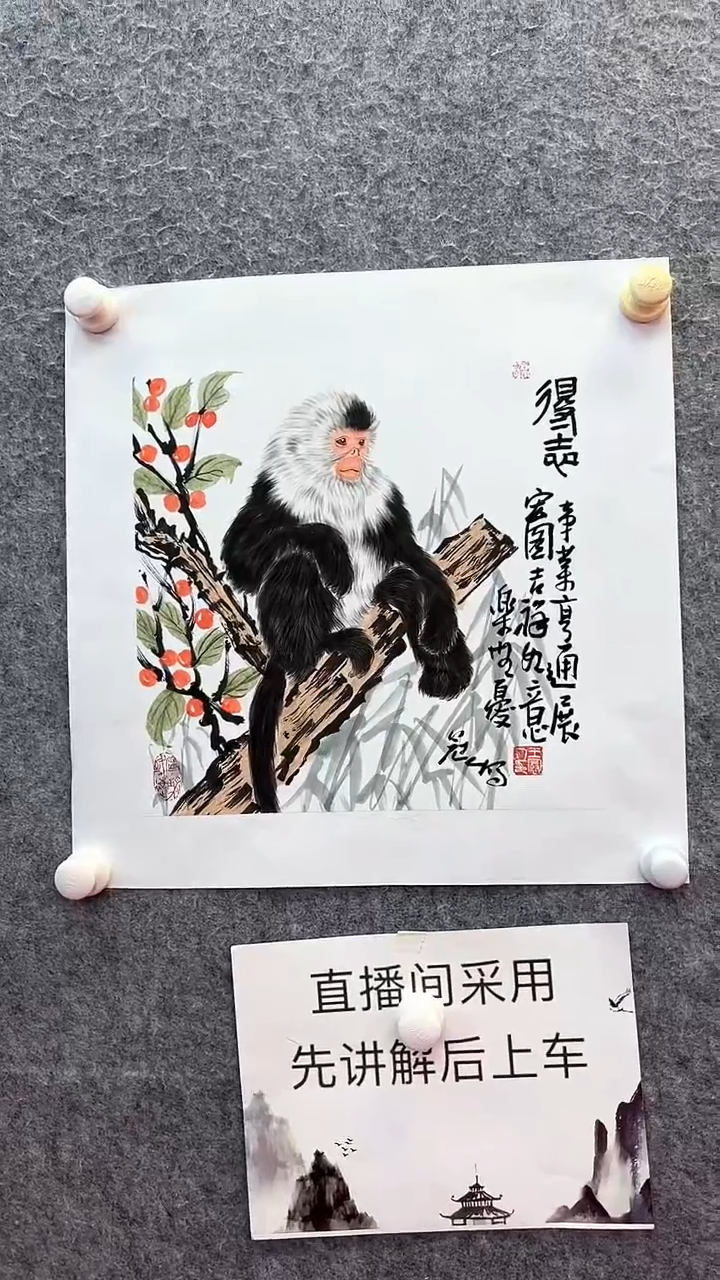 得志
事業亨通展
宏图吉祥如意
樂無憂
直播间采用
先讲解后上车